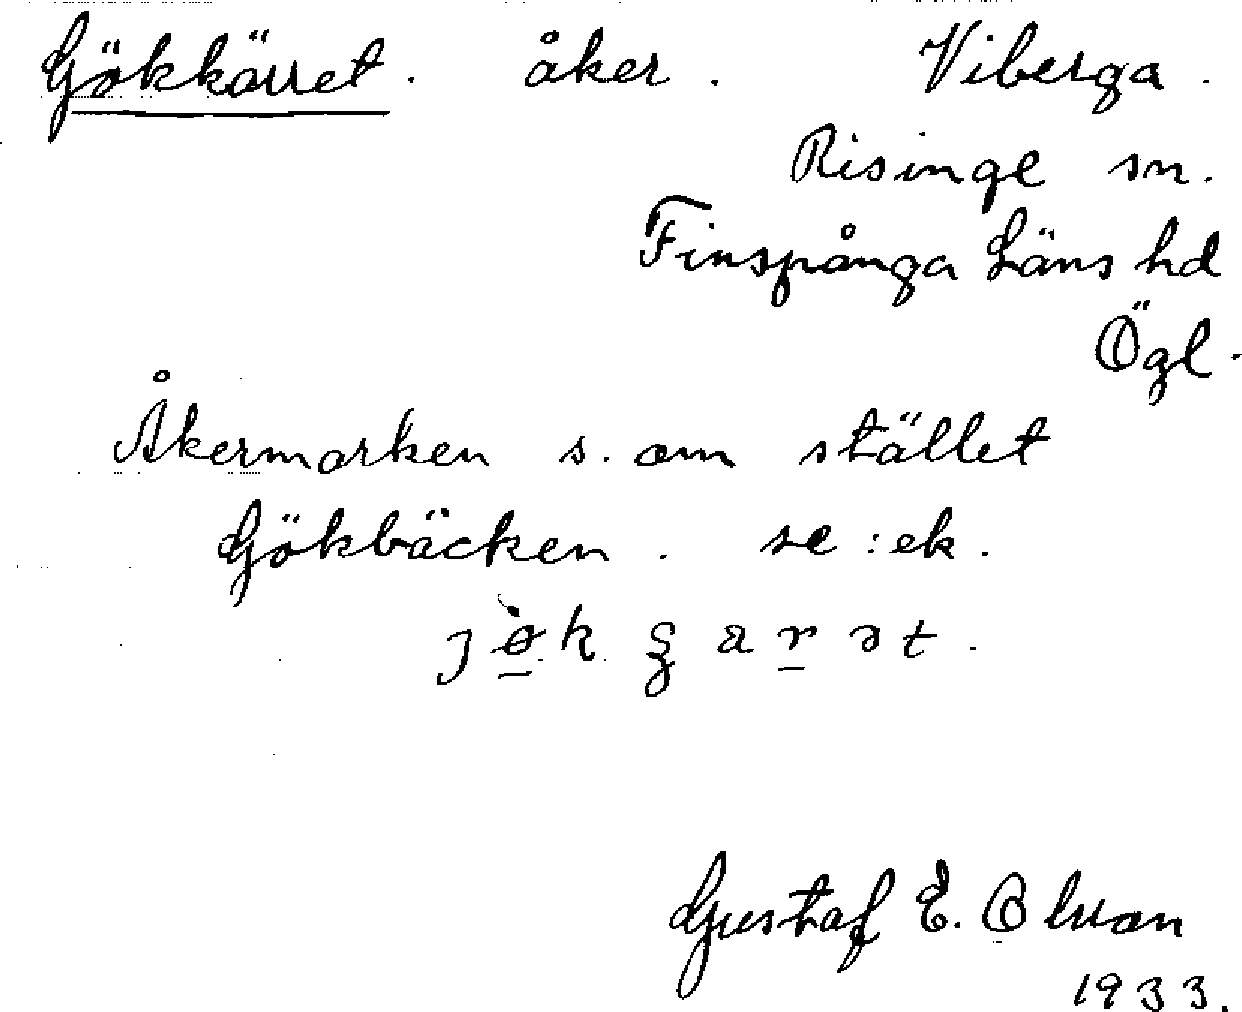 Gökkärret. åker. Viberga.
Risinge sn.
Finspånga Läns hd
Ögl.
Åkermarken s. om stället
Gökbäcken. se :ek.
Gustaf E.
1933.